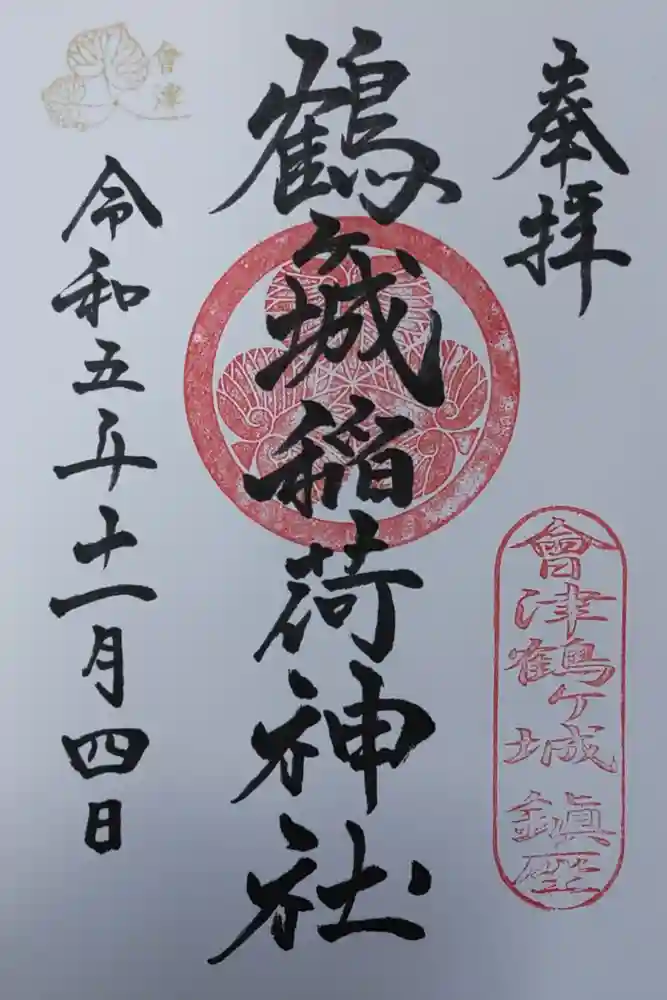 奉拝
會津鶴ヶ城鎮座
鶴ヶ城稲荷神社
令和五年十一月四日
會津